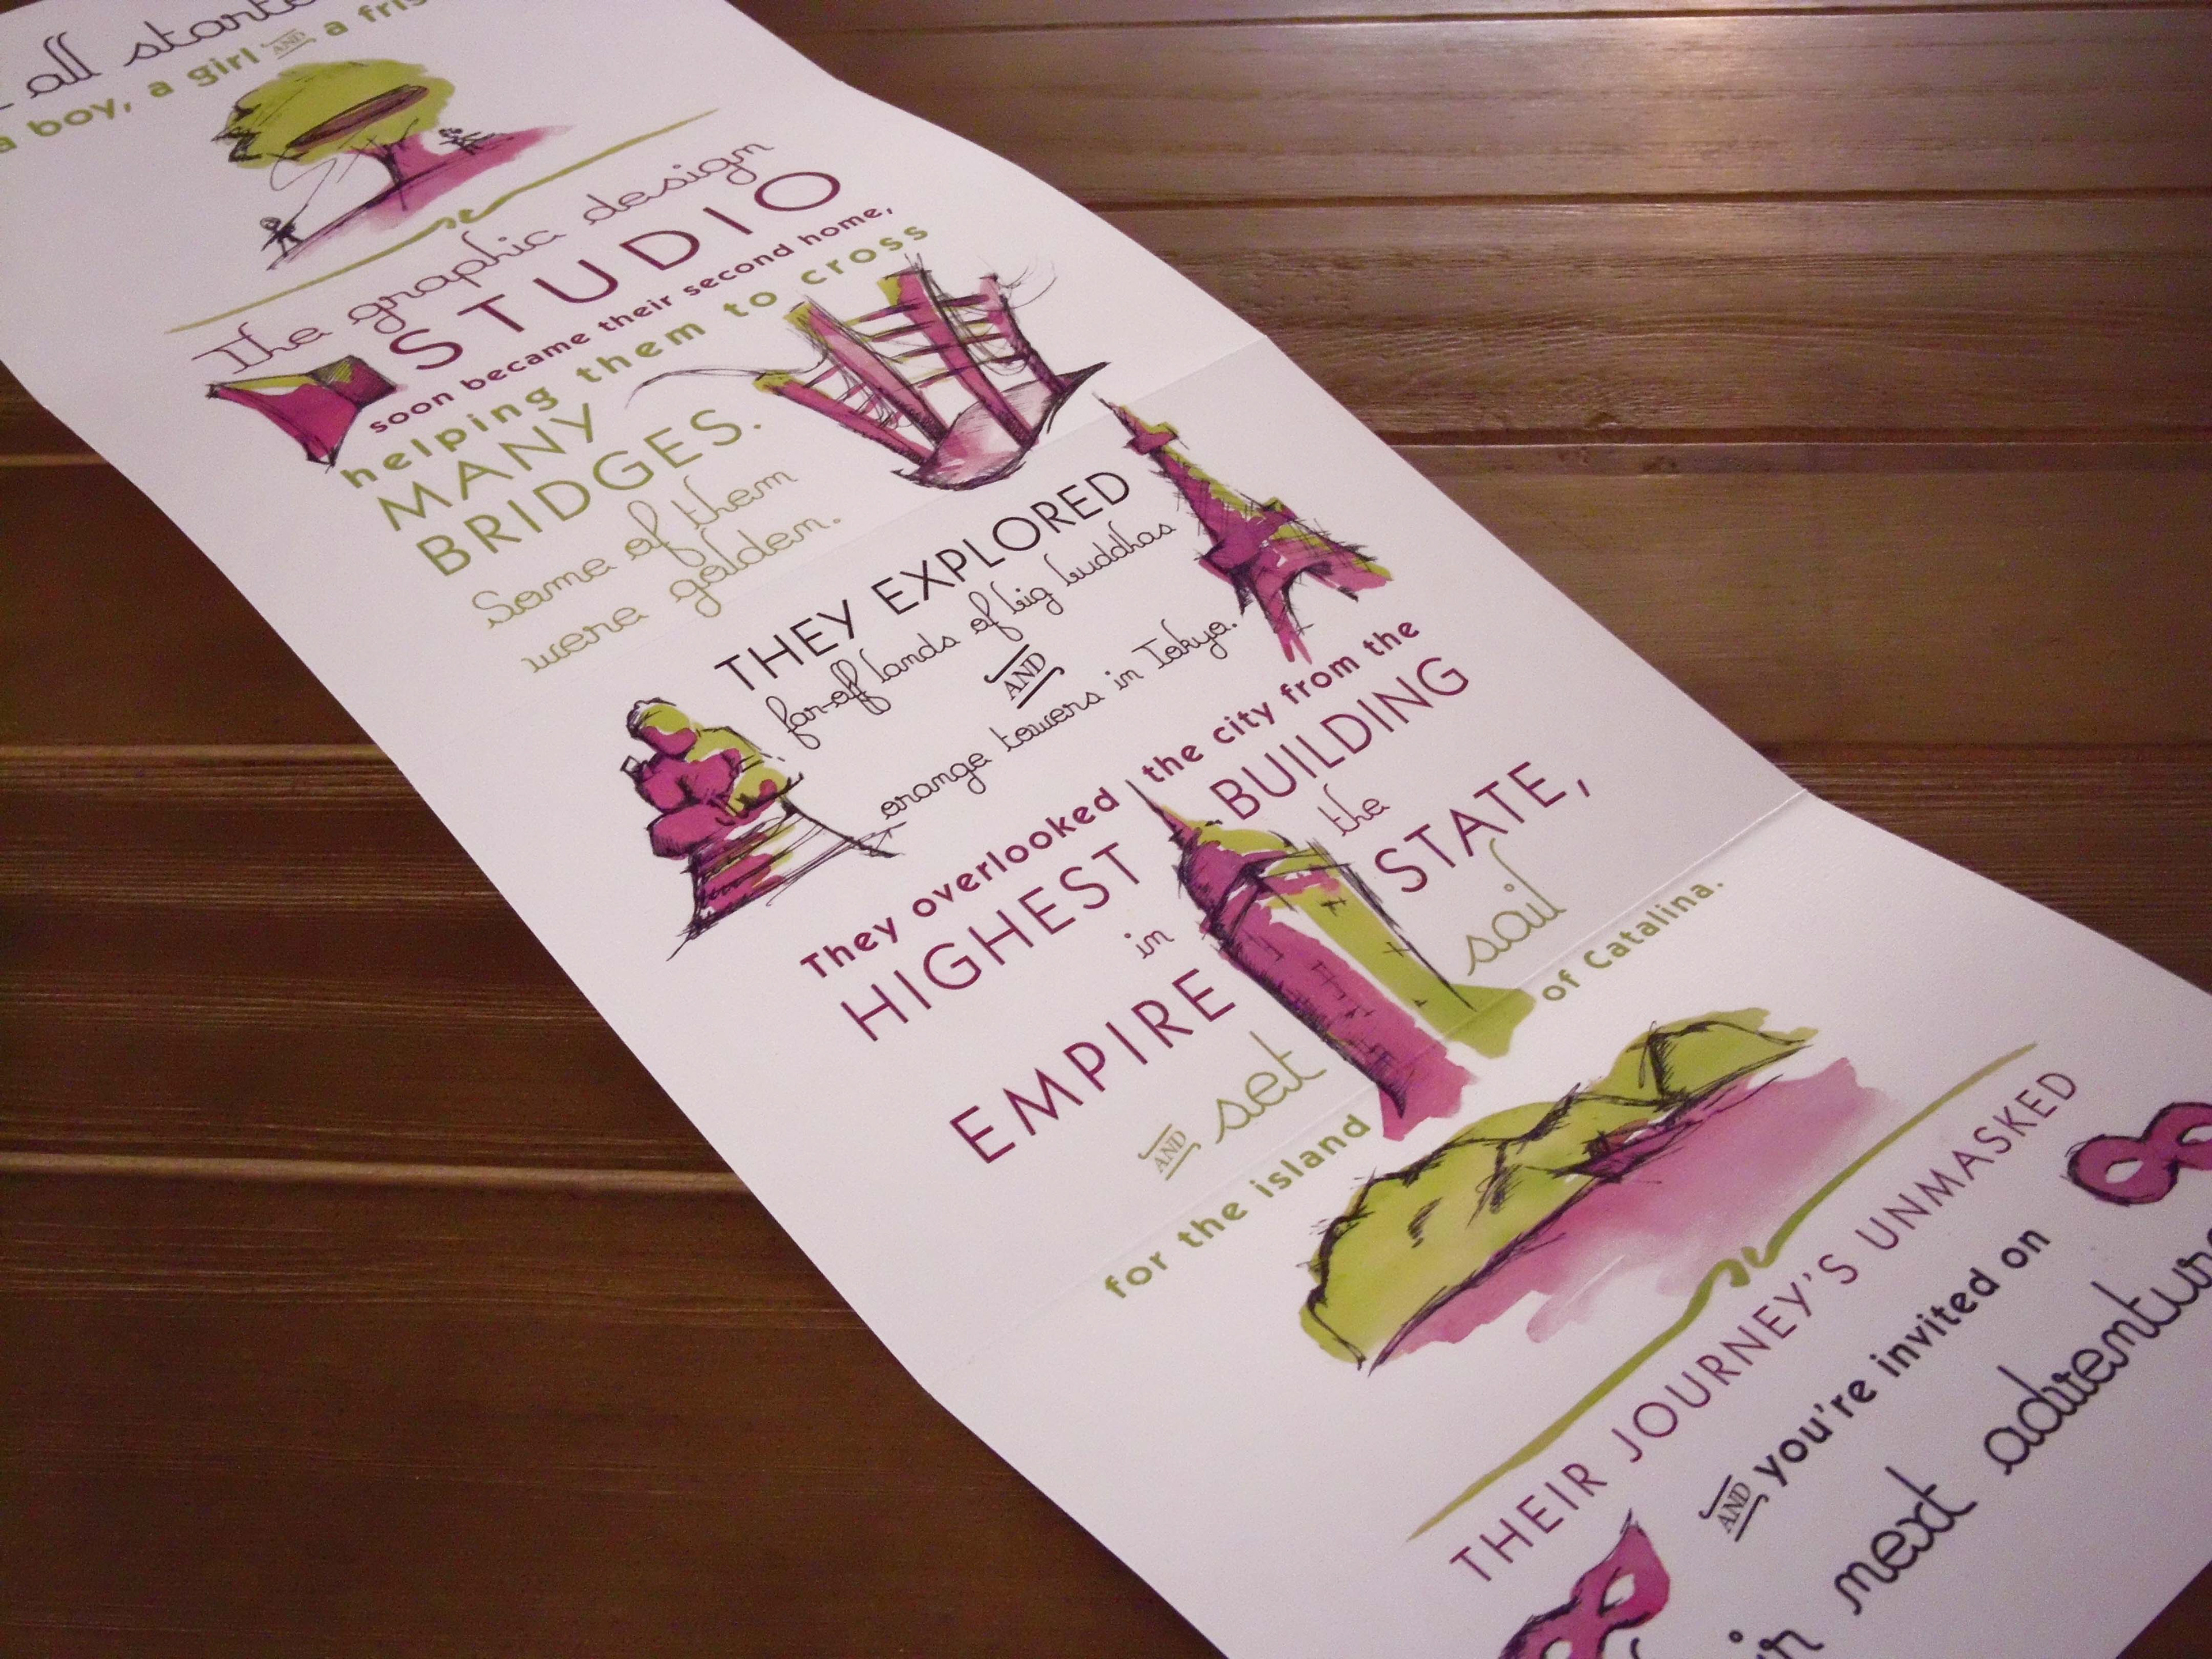 all started
a boy, a girl AND a
The graphic design
STUDIO
soon became their second home,
helping them to cross
MANY
BRIDGES.
Some of them
were golden.
THEY EXPLORED
far-off lands of big buddhas
AND
orange towers in Tokyo.
They overlooked the city from the
HIGHEST BUILDING
in the
EMPIRE STATE,
AND set sail
for the island of Catalina.
THEIR JOURNEY'S UNMASKED
AND you're invited on
next